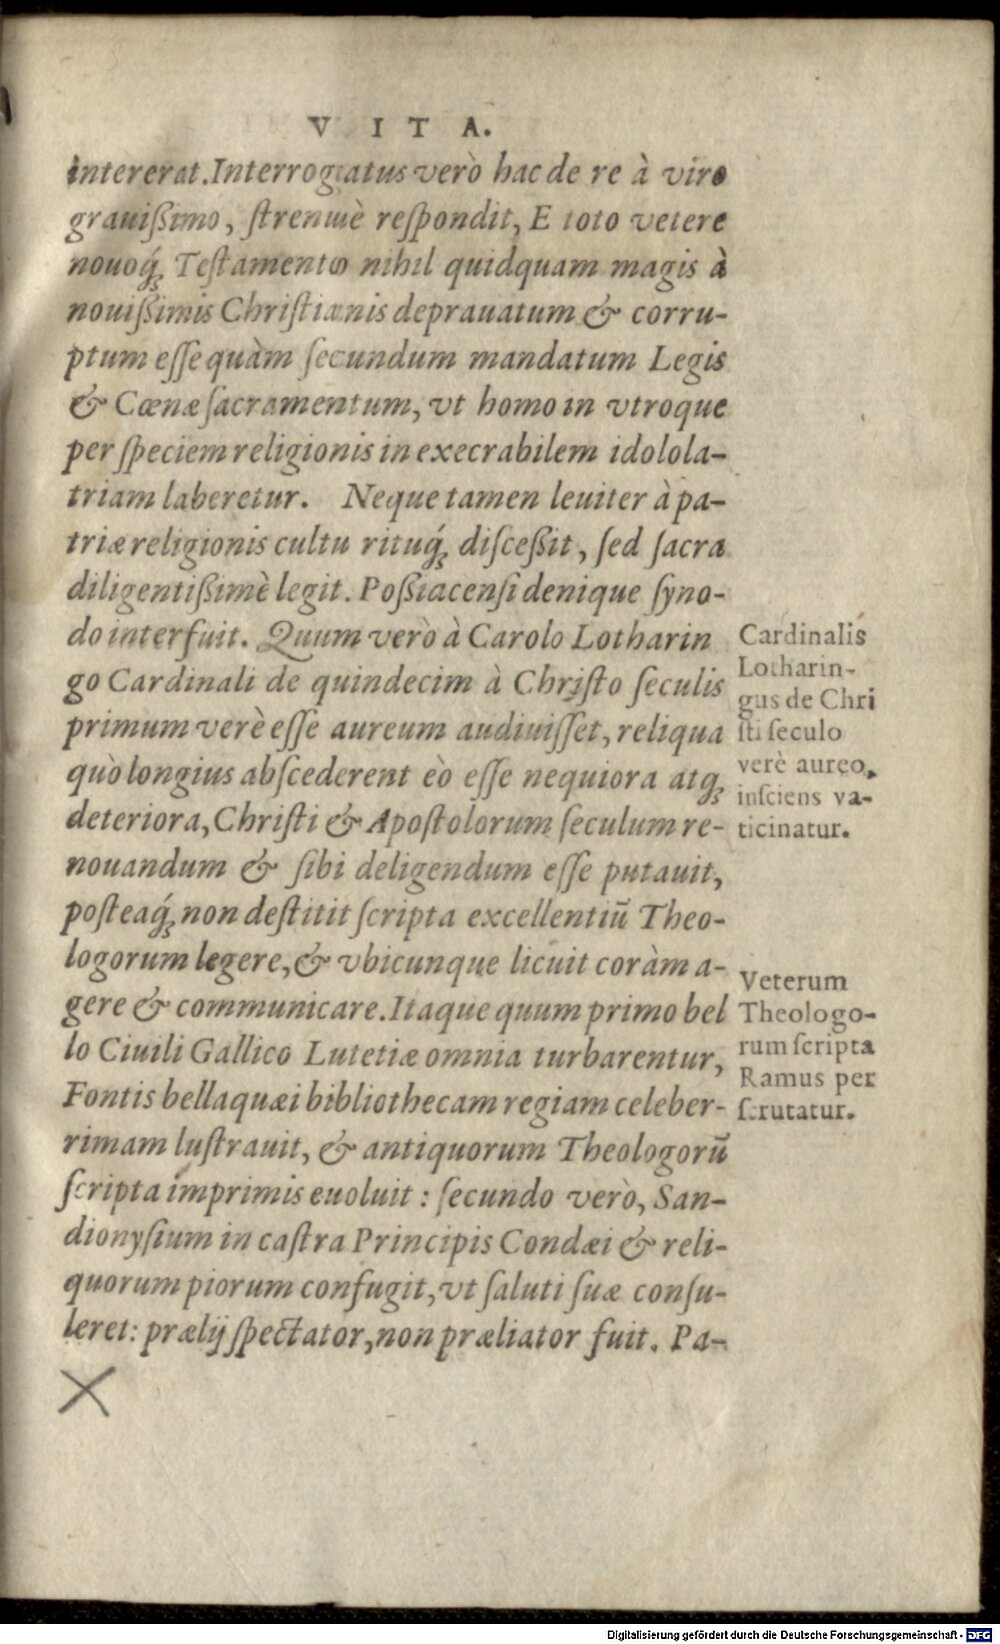 VITA.
intererat. Interrogatus verò hac de re à viro
grauißimo, ſtrenuè reſpondit, E toto vetere
nouoq́ꝫ Teſtamento nihil quidquam magis à
nouißimis Chriſtianis deprauatum & corru-
ptum eſſe quàm ſecundum mandatum Legis
& Cœnæ ſacramentum, vt homo in vtroque
per ſpeciem religionis in execrabilem idolola-
triam laberetur. Neque tamen leuiter à pa-
triæ religionis cultu rituq́ꝫ diſceßit, ſed ſacra
diligentißimè legit. Poßiacenſi denique ſyno-
do interfuit. Quum verò à Carolo Lotharin
go Cardinali de quindecim à Chriſto ſeculis
primum verè eſſe aureum audiuiſſet, reliqua
quò longius abſcederent eò eſſe nequiora atqꝫ
deteriora, Chriſti & Apoſtolorum ſeculum re-
nouandum & ſibi deligendum eſſe putauit,
poſteaq́ꝫ non deſtitit ſcripta excellentiũ Theo-
logorum legere, & vbicunque licuit coràm a-
gere & communicare. Itaque quum primo bel
lo Ciuili Gallico Lutetiæ omnia turbarentur,
Fontis bellaquæi bibliothecam regiam celeber-
rimam luſtrauit, & antiquorum Theologorũ
ſcripta imprimis euoluit : ſecundo verò, San-
dionyſium in caſtra Principis Condæi & reli-
quorum piorum confugit, vt ſaluti ſuæ conſu-
leret: prælij ſpectator, non præliator fuit. Pa-
Cardinalis
Lotharin-
gus de Chri
ſti ſeculo
verè aureo,
inſciens va-
ticinatur.
Veterum
Theologo-
rum ſcripta
Ramus per
ſcrutatur.
Digitalisierung gefördert durch die Deutsche Forschungsgemeinschaft - DFG